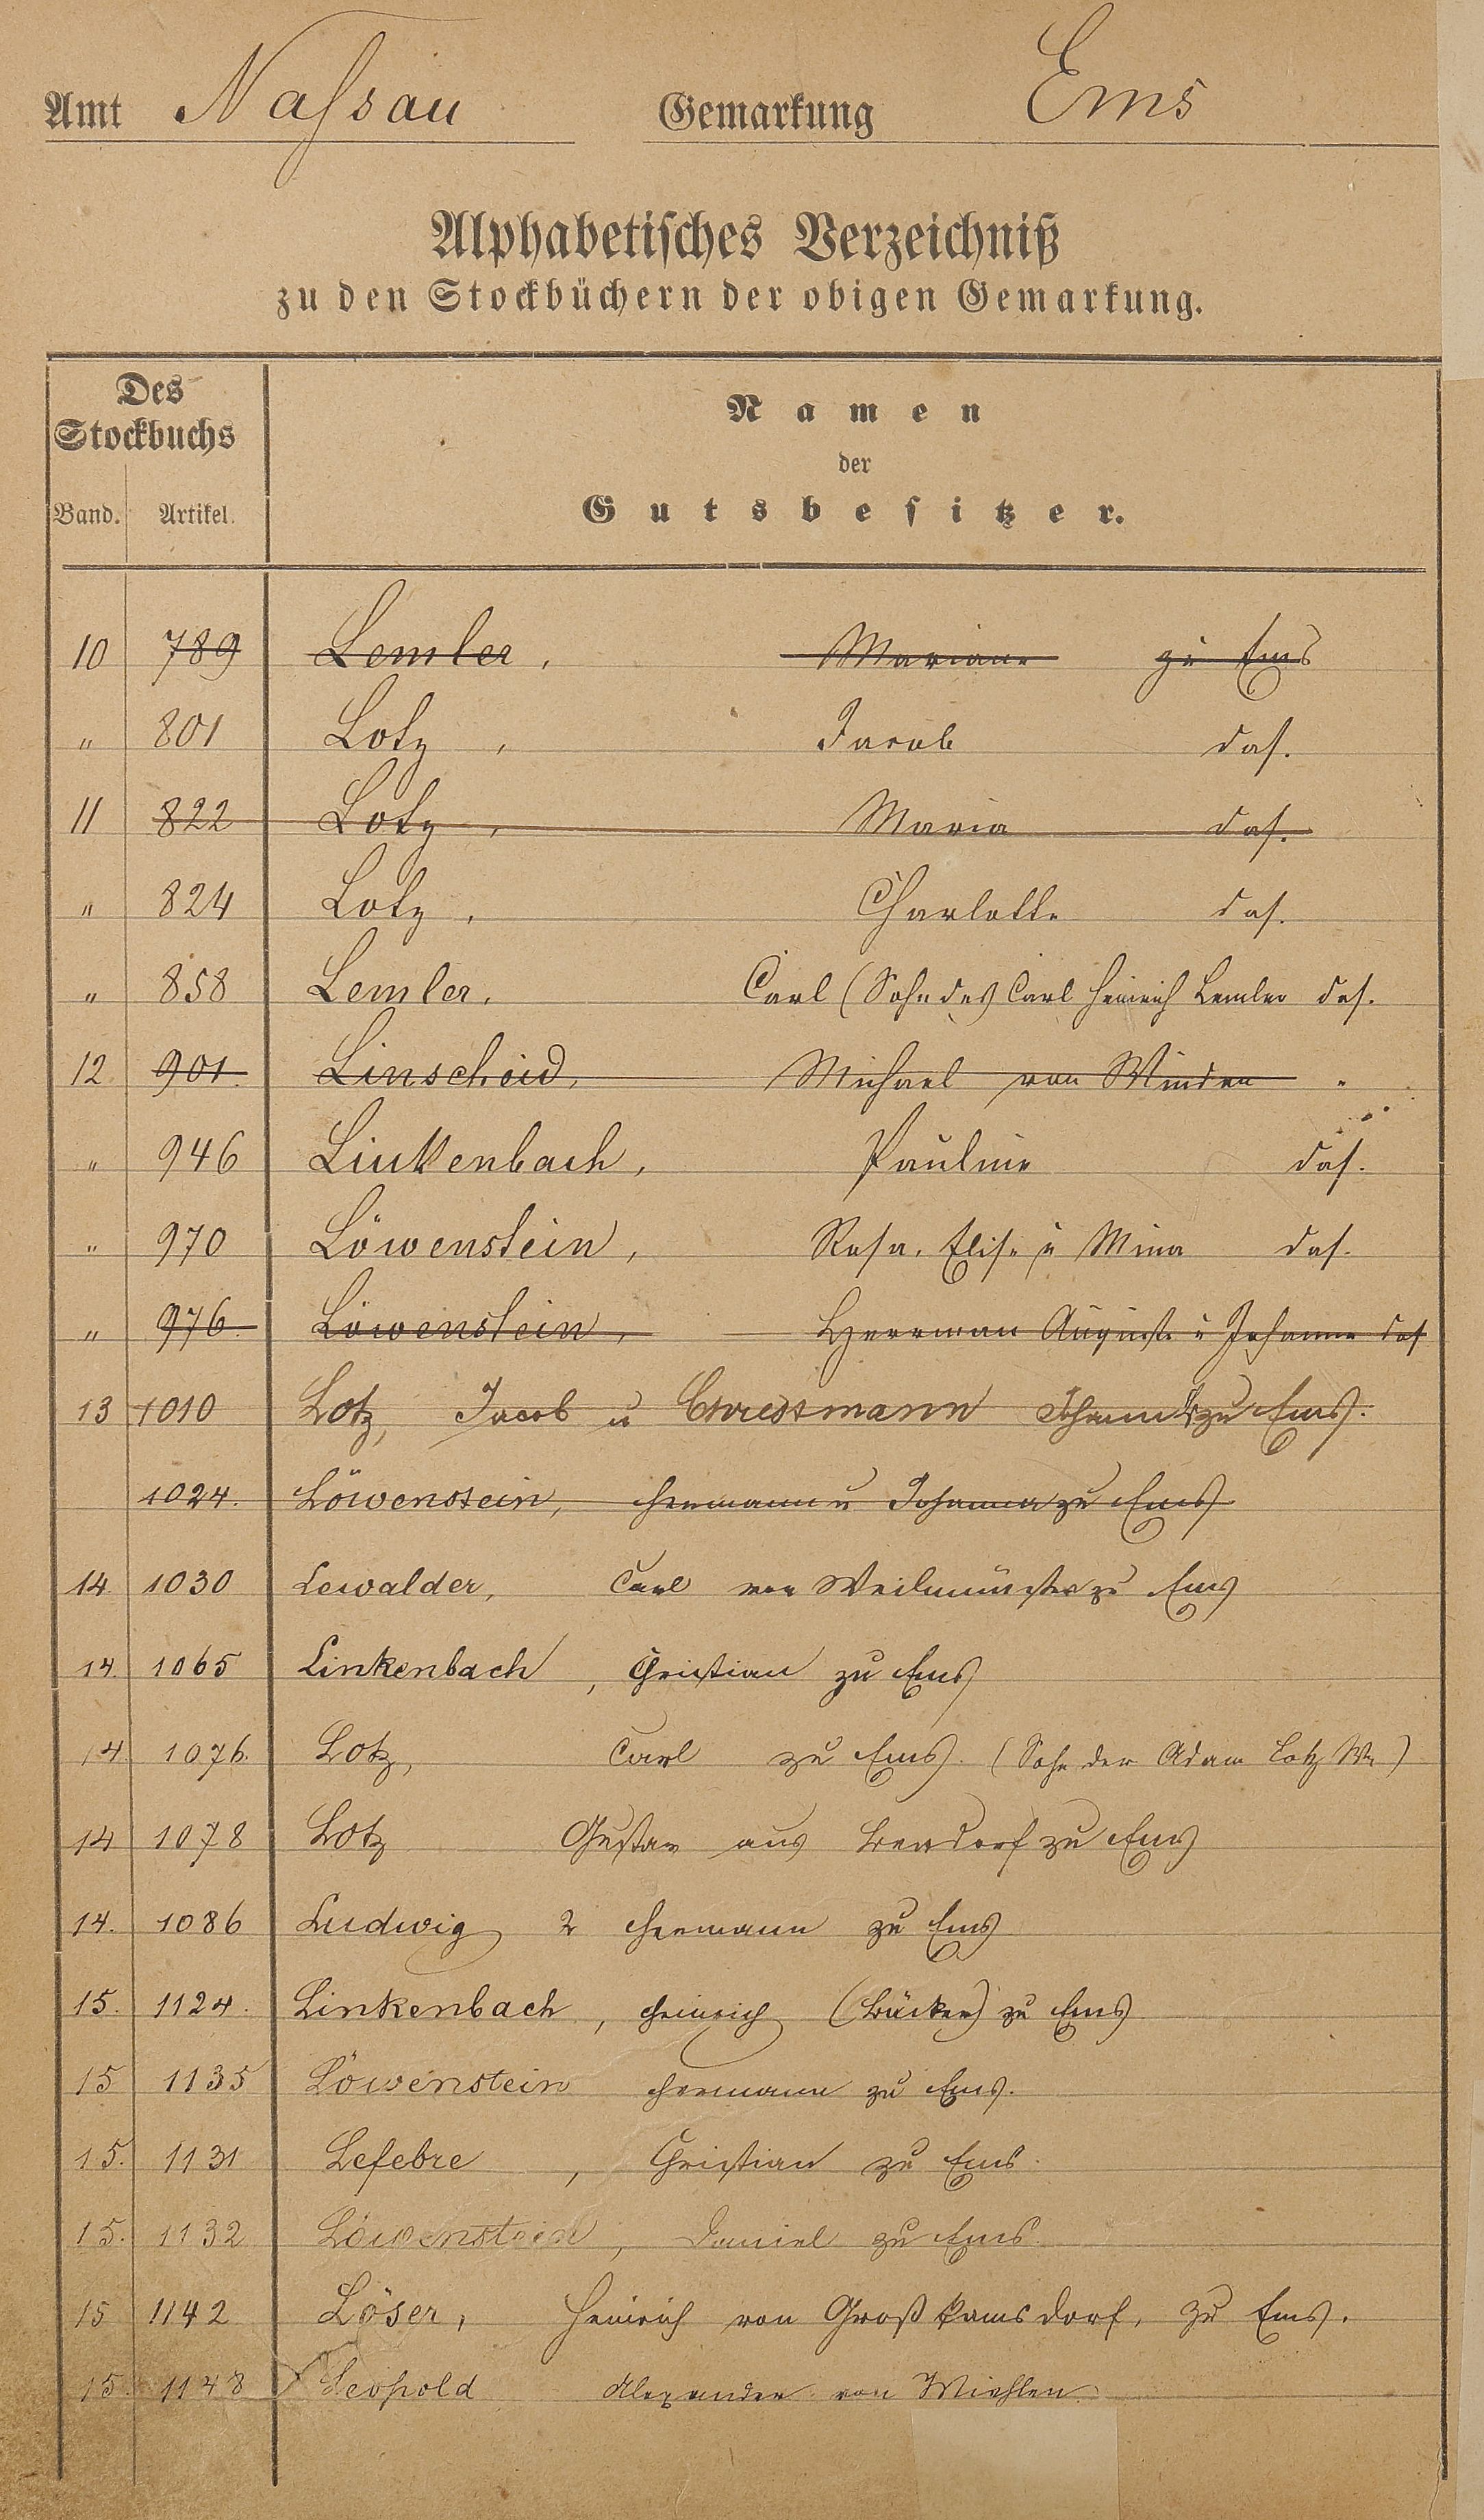 Amt Nassau Gemarkung Ems
Alphabetisches Verzeichniß
zu den Stockbüchern der obigen Gemarkung.
Des
Stockbuchs
Namen
der
Band. Artikel. Gutsbesitzer.
10 789 Lemler, Mariane zu Ems
" 801 Lotz, Jacob das.
11 822 Lotz, Maria das.
" 824 Lotz, Charlotte das.
" 858 Lemler, Carl (Sohn des Carl Heinrich Lemler das.
12 901. Linscheid, Michael von Winden "
" 946 Linkenbach, Pauline das.
" 970 Löwenstein, Rosa, Elise u Mina das.
" 976. Löwenstein, Herrman Auguste u Johanna das
13 1010 Lotz, Jacob u zu Ems.
1024. Löwenstein, Hermann u Johanna zu Ems
14 1030 Lewalder, Carl von Weilmünster zu Ems
14. 1065 Linkenbach, Christian zu Ems
14 1076. Lotz, Carl zu Ems. (Sohn der Adam Lotz We)
14 1078 Lotz Gustav aus Bendorf zu Ems
14. 1086 Ludwig 2 Hermann zu Ems
15. 1124. Linkenbach, Heinrich (Bäcker) zu Ems
15 1135 Löwenstein Hermann zu Ems.
15. 1131 Lefebre, Christian zu Ems.
15. 1132 Löwenstein, Daniel zu Ems.
15 1142 Löser, Heinrich von Großkamsdorf, zu Ems.
15. 1148 Leopold Alexander von Miehlen.